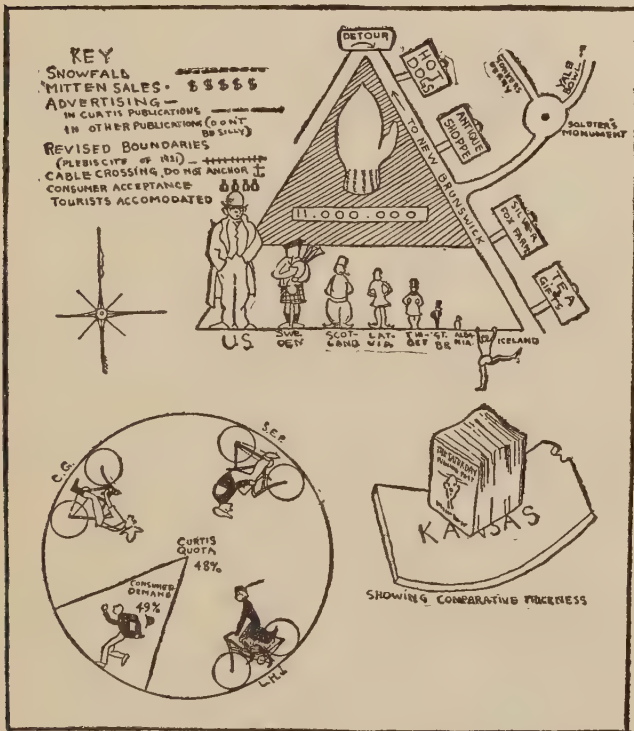 KEY
SNOWFALL
MITTEN SALES - $ $ $ $ $
ADVERTISING —
IN CURTIS PUBLICATIONS
IN OTHER PUBLICATIONS (DON'T
BE SILLY)
REVISED BOUNDARIES
(PLEBISCITE OF 1921) —
CABLE CROSSING, DO NOT ANCHOR
CONSUMER ACCEPTANCE
TOURISTS ACCOMODATED
DETOUR
HOT
DOGS
ANTIQUE
SHOPPE
YALE
BOWL
SOLDIER'S
MONUMENT
TO NEW BRUNSWICK
SILVER
FOX FARM
TEA
GIFTS
11.000.000
US
SWE
DEN
SCOT-
LAND
LAT-
VIA
THI-
BET
GT.
BR
ALBA
NIA.
ICELAND
C.G.
S.E.P.
CURTIS
QUOTA
48%
CONSUMER
DEMAND
49%
L.H.J.
THE SATURDAY
EVENING POST
KANSAS
SHOWING COMPARATIVE THICKNESS